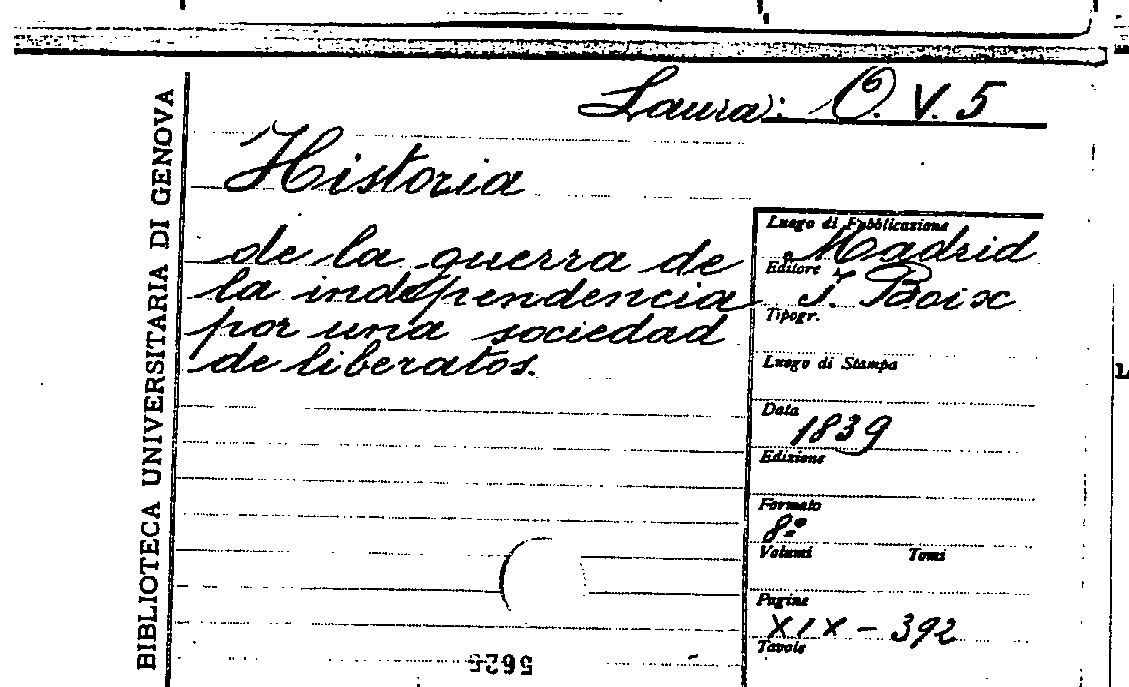 Laura: O. V. 5
Historia
de la guerra de
la independencia
por una sociedad
de liberatos.
BIBLIOTECA UNIVERSITARIA DI GENOVA
Luogo di Pubblicazione
Madrid
Editore
I. Boix
Tipogr.
Luogo di Stampa
Data
1839
Edizione
Formato
8º
Volumi Tomi
Pagine
XIX - 392
Tavole